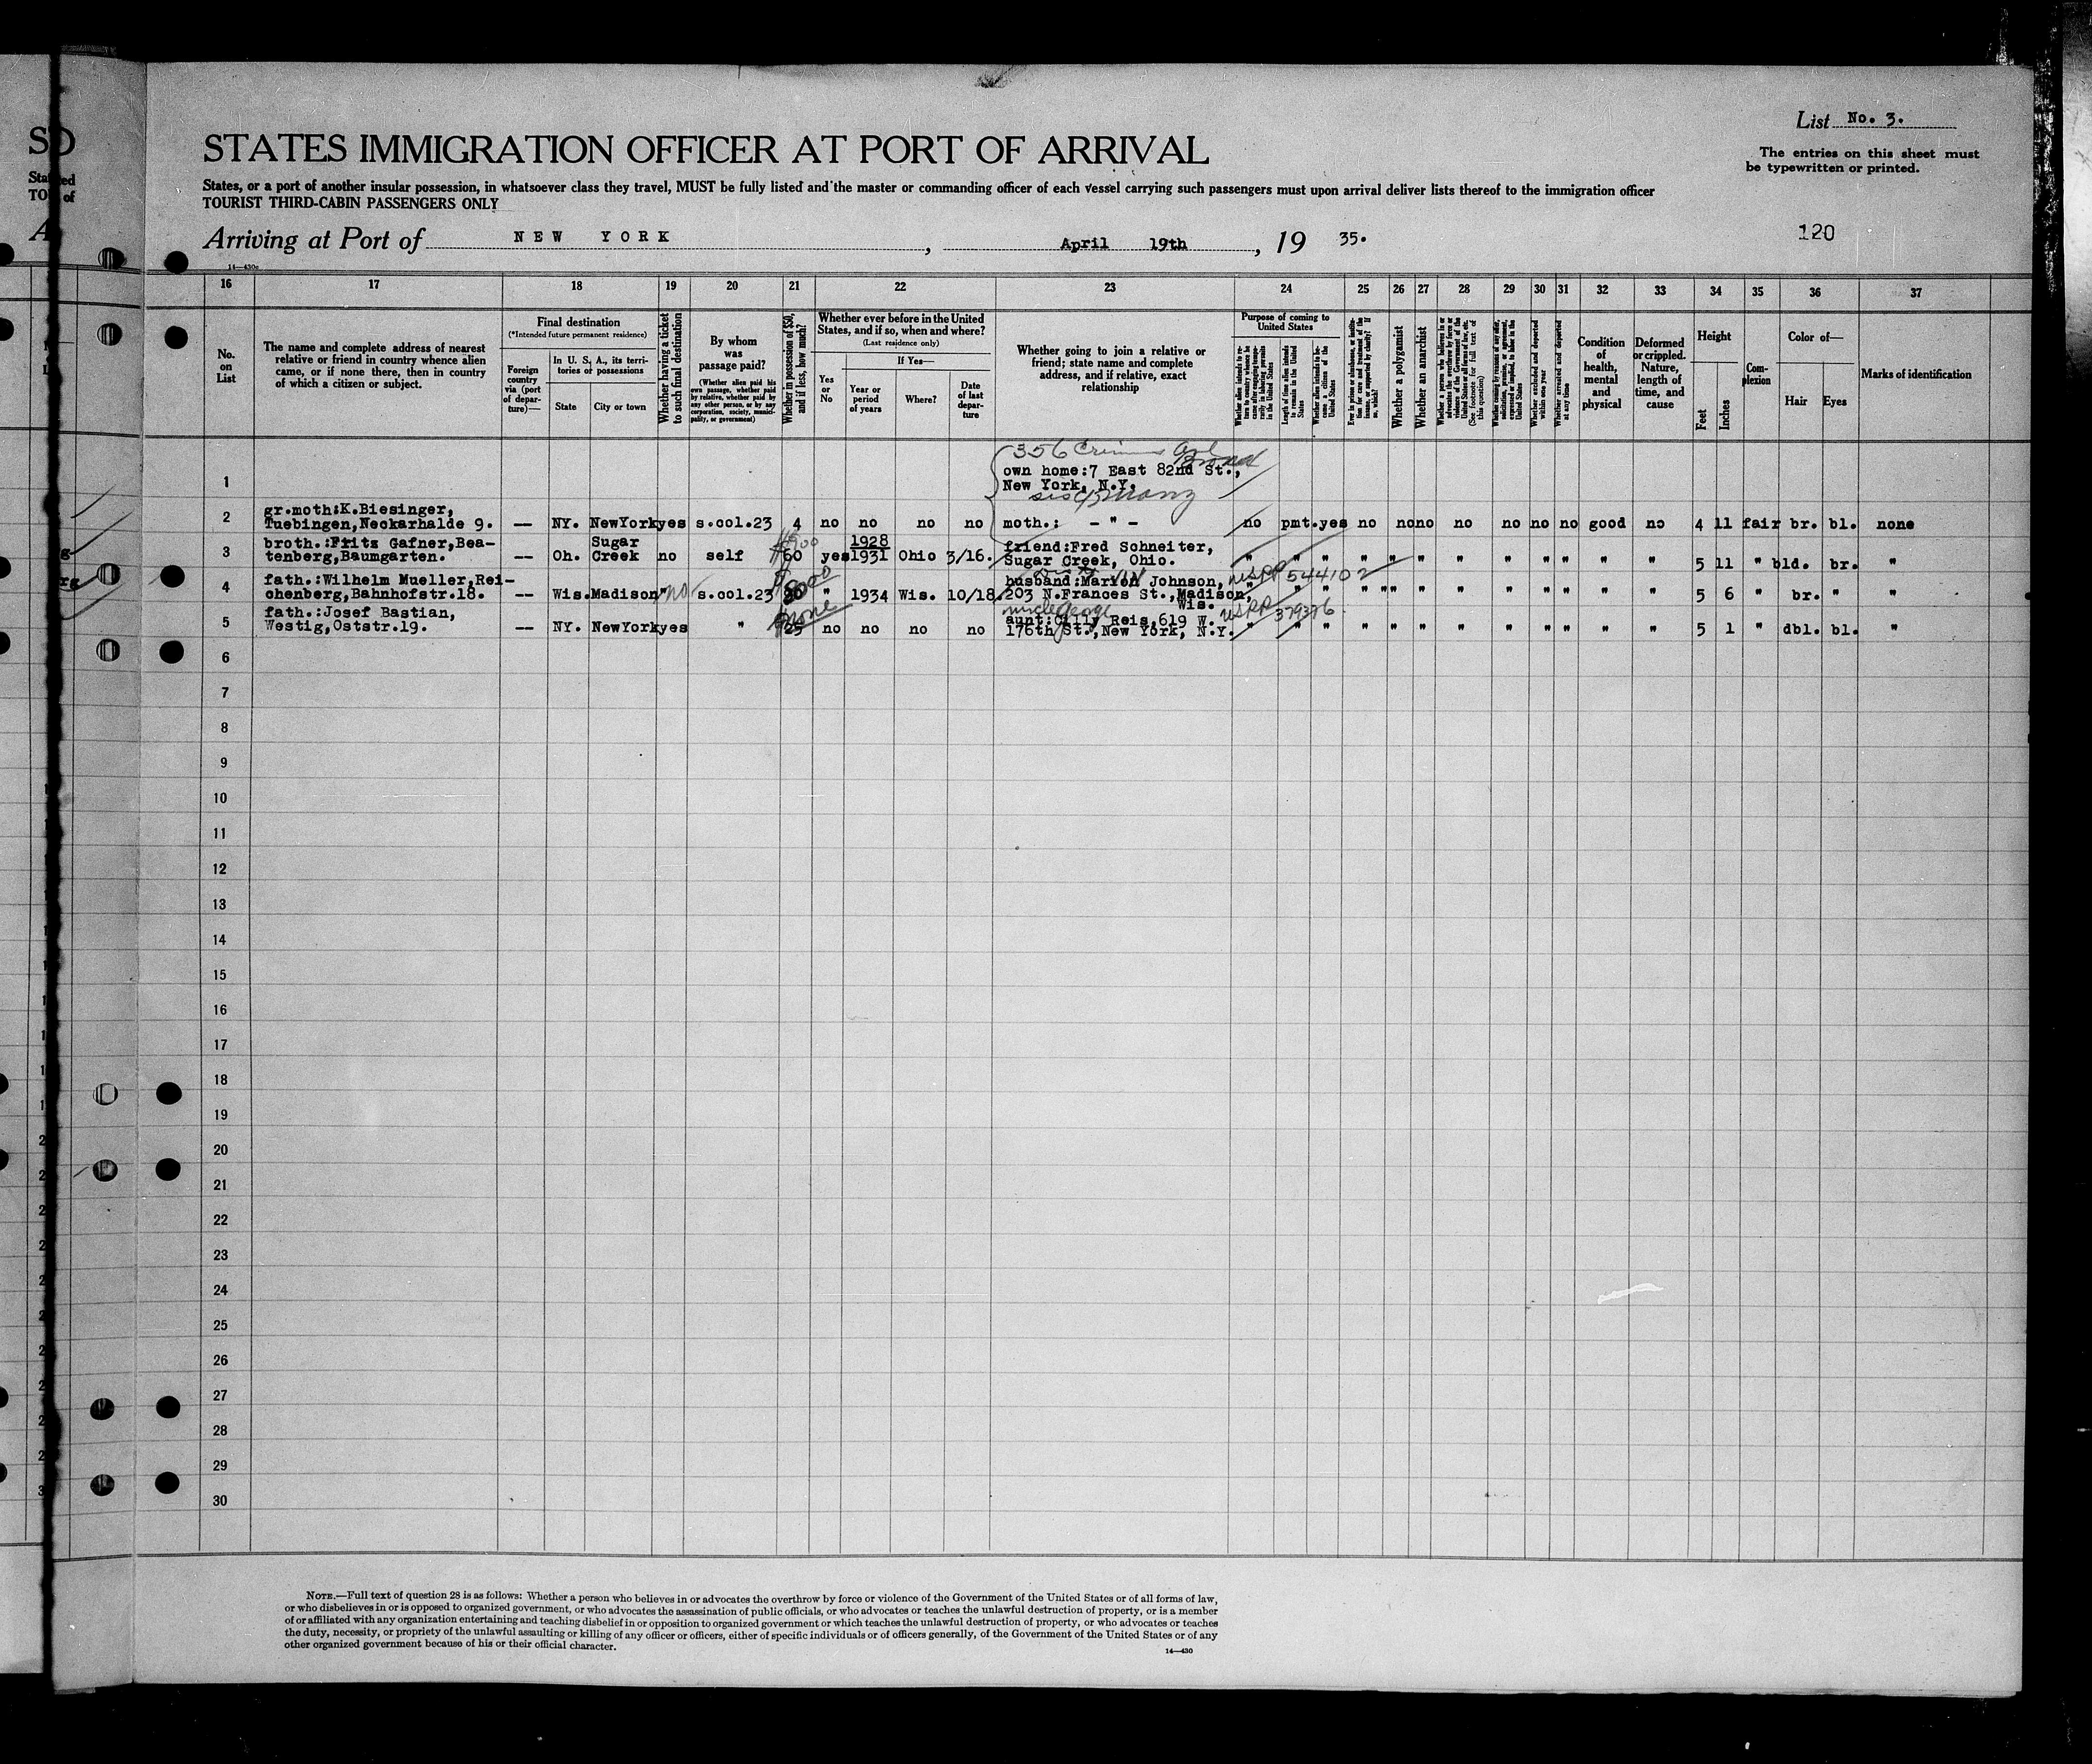 List No. 3.
STATES IMMIGRATION OFFICER AT PORT OF ARRIVAL
The entries on this sheet must
be typewritten or printed.
States, or a port of another insular possession, in whatsoever class they travel, MUST be fully listed and the master or commanding officer of each vessel carrying such passengers must upon arrival deliver lists thereof to the immigration officer
TOURIST THIRD-CABIN PASSENGERS ONLY
Arriving at Port of NEW YORK, April 19th, 19 35.
120
14—430c
16 17 18 19 20 21 22 23 24 25 26 27 28 29 30 31 32 33 34 35 36 37
No. on List
The name and complete address of nearest relative or friend in country whence alien came, or if none there, then in country of which a citizen or subject.
Final destination
(*Intended future permanent residence)
Foreign country via (port of departure)—
In U. S. A., its territories or possessions
State
City or town
Whether having a ticket to such final destination
By whom was passage paid?
(Whether alien paid his own passage, whether paid by relative, whether paid by any other person, or by any corporation, society, municipality, or government)
Whether in possession of $50, and if less, how much?
Whether ever before in the United States, and if so, when and where?
(Last residence only)
If Yes—
Yes or No
Year or period of years
Where?
Date of last departure
Whether going to join a relative or friend; state name and complete address, and if relative, exact relationship
Purpose of coming to United States
Whether alien intends to return to country whence he came after engaging temporarily in laboring pursuits in the United States
Length of time alien intends to remain in the United States
Whether alien intends to become a citizen of the United States
Ever in prison or almshouse, or institution for care and treatment of the insane, or supported by charity? If so, which?
Whether a polygamist
Whether an anarchist
Whether a person who believes in or advocates the overthrow by force or violence of the Government of the United States or all forms of law, etc. (See footnote for full text of this question)
Whether coming by reason of any offer, solicitation, promise, or agreement, expressed or implied, to labor in the United States
Whether excluded and deported within one year
Whether arrested and deported at any time
Condition of health, mental and physical
Deformed or crippled. Nature, length of time, and cause
Height
Feet
Inches
Complexion
Color of—
Hair
Eyes
Marks of identification
356
1 own home:7 East 82nd St.,
New York, N.Y.
gr.moth:K.Biesinger,
2 Tuebingen,Neckarhalde 9. -- NY. NewYork yes s.col.23 4 no no no no moth.: - " - no pmt. yes no no no no no no no good no 4 11 fair br. bl. none
broth.:Frits Gafner,Bea- Sugar 1928 friend:Fred Schneiter,
3 tenberg,Baumgarten. -- Oh. Creek no self 60 yes 1931 Ohio 3/16. Sugar Creek, Ohio. " " " " " " " " " " " " 5 11 " bld. br. "
fath.:Wilhelm Mueller,Rei- husband:Marvin Johnson, 544102
4 chenberg,Bahnhofstr.18. -- Wis. Madison " no s.col.23 80 " 1934 Wis. 10/18. 203 N.Frances St.,Madison, " " " " " " " " " " " " 5 6 " br. " "
Wis.
fath.:Josef Bastian, none uncle George aunt:Cilly Reis,619 W. 379376
5 Westig,Oststr.19. -- NY. NewYork yes " 25 no no no no 176th St.,New York, N.Y. " " " " " " " " " " " " 5 1 " dbl. bl. "
6
7
8
9
10
11
12
13
14
15
16
17
18
19
20
21
22
23
24
25
26
27
28
29
30
NOTE.—Full text of question 28 is as follows: Whether a person who believes in or advocates the overthrow by force or violence of the Government of the United States or of all forms of law,
or who disbelieves in or is opposed to organized government, or who advocates the assassination of public officials, or who advocates or teaches the unlawful destruction of property, or is a member
of or affiliated with any organization entertaining and teaching disbelief in or opposition to organized government or which teaches the unlawful destruction of property, or who advocates or teaches
the duty, necessity, or propriety of the unlawful assaulting or killing of any officer or officers, either of specific individuals or of officers generally, of the Government of the United States or of any
other organized government because of his or their official character.
14—430